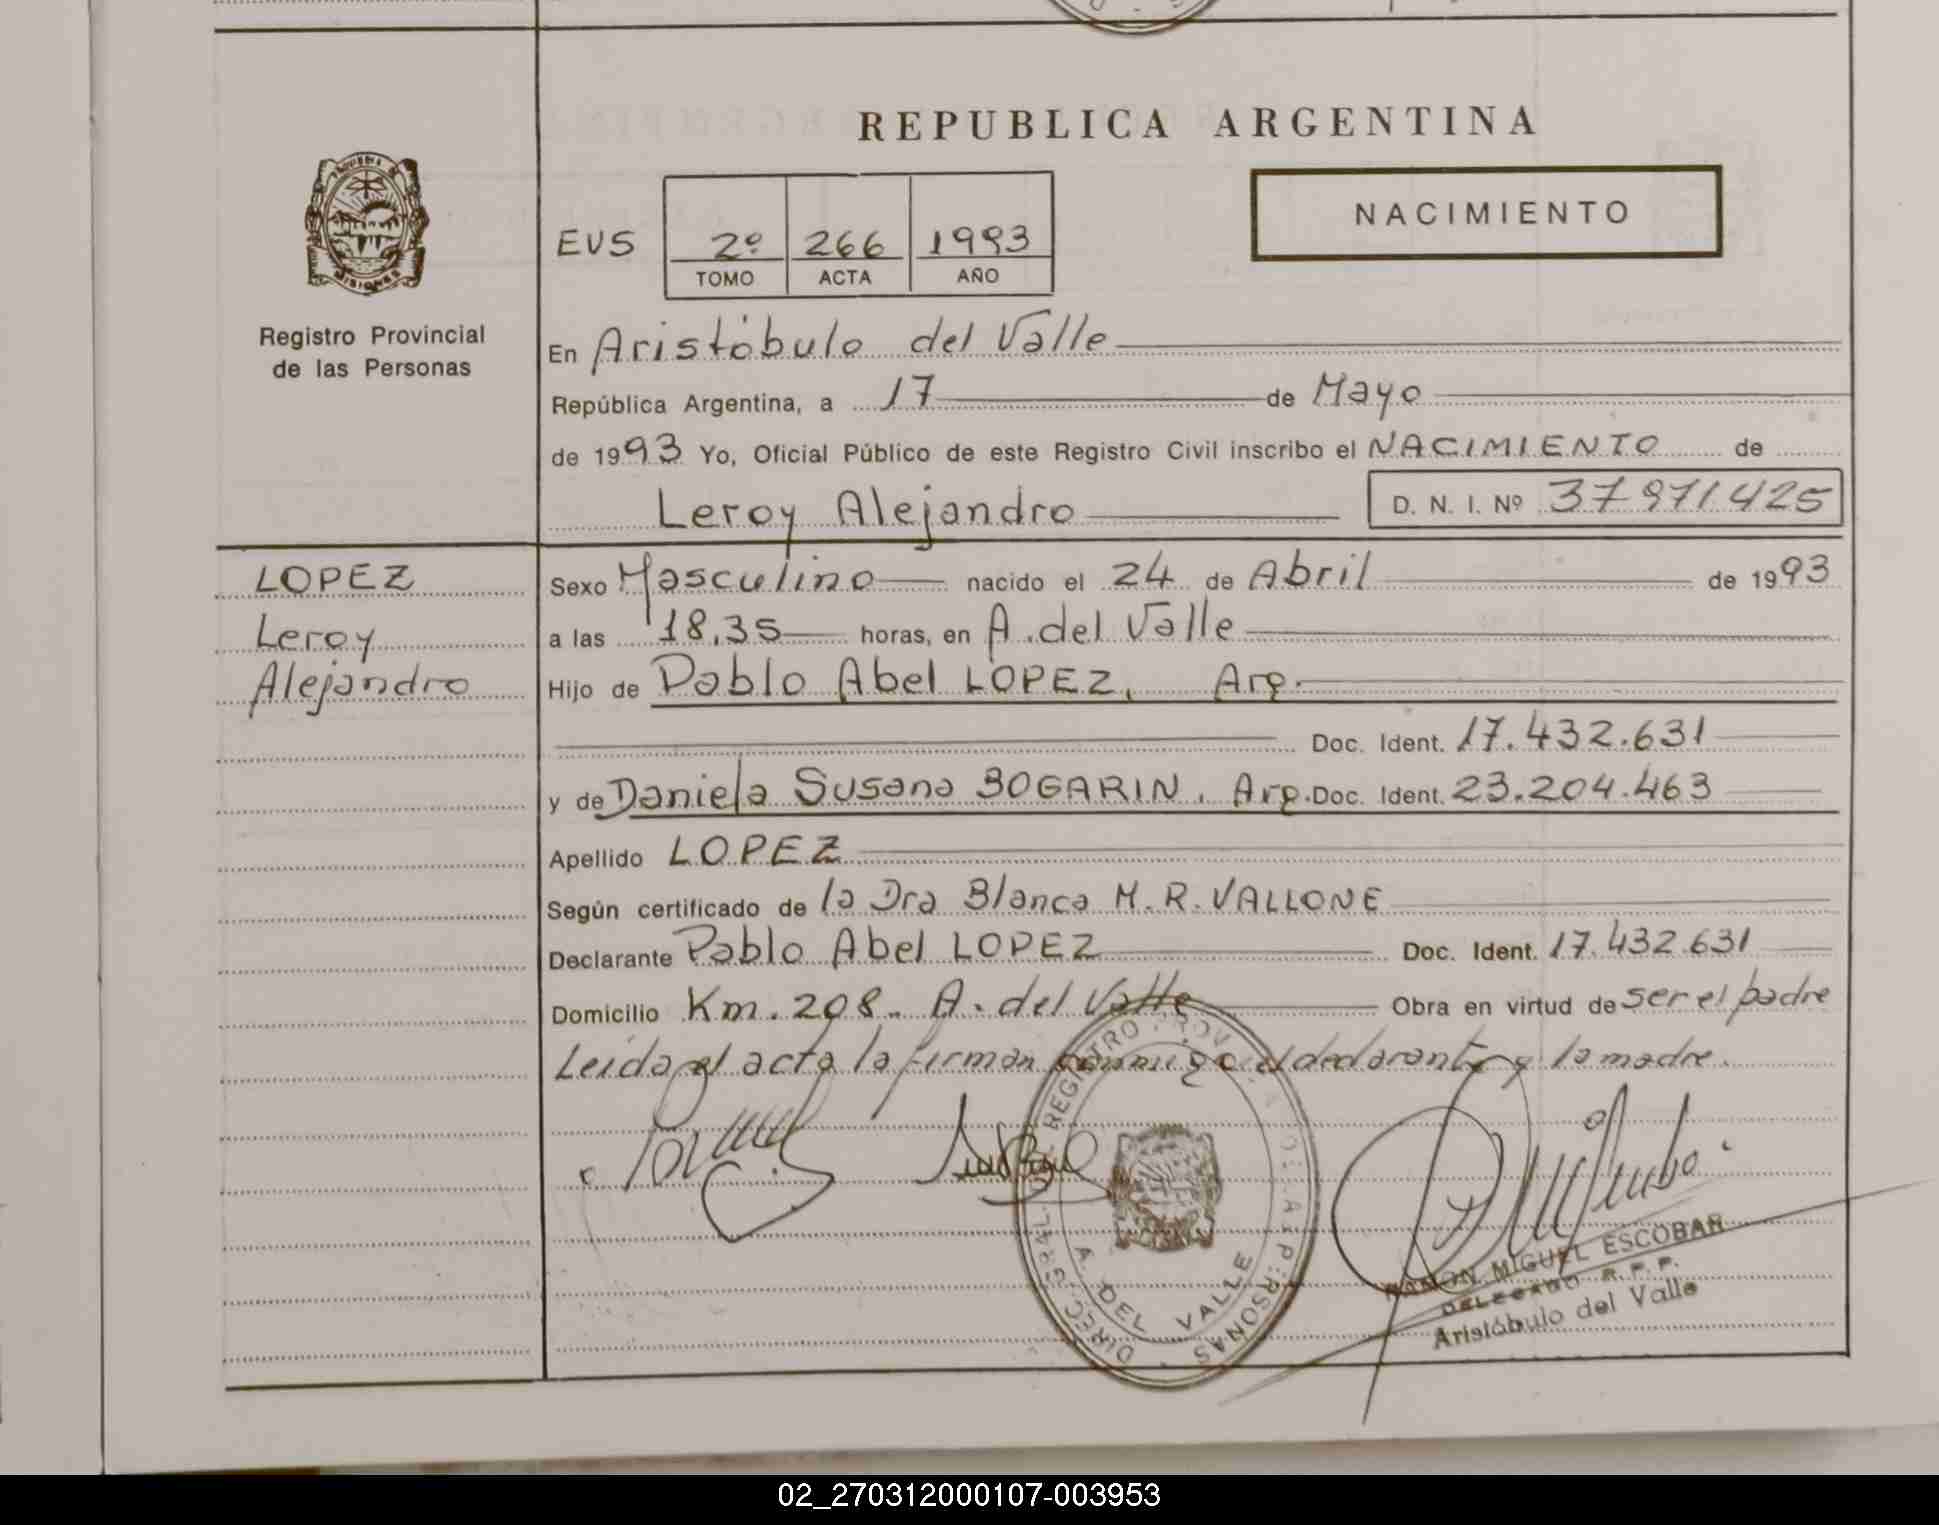 REPUBLICA ARGENTINA
NACIMIENTO
EVS 2º 266 1993
TOMO ACTA AÑO
Registro Provincial
de las Personas
En Aristóbulo del Valle
República Argentina, a 17 de Mayo
de 1993 Yo, Oficial Público de este Registro Civil inscribo el NACIMIENTO de
Leroy Alejandro D. N. I. Nº 37971425
LOPEZ
Leroy
Alejandro
Sexo Masculino nacido el 24 de Abril de 1993
a las 18,35 horas, en A. del Valle
Hijo de Pablo Abel LOPEZ, Arg.
Doc. Ident. 17.432.631
y de Daniela Susana BOGARIN, Arg. Doc. Ident. 23.204.463
Apellido LOPEZ
Según certificado de la Dra Blanca M. R. VALLONE
Declarante Pablo Abel LOPEZ Doc. Ident. 17.432.631
Domicilio Km. 208. A. del Valle Obra en virtud de ser el padre
Leída el acta la firman conmigo el declarante y la madre.
DIREC. GRAL. REGISTRO PROV. DE LAS PERSONAS
A. DEL VALLE
RAMON MIGUEL ESCOBAR
DELEGADO R. P. P.
Aristóbulo del Valle
02_270312000107-003953